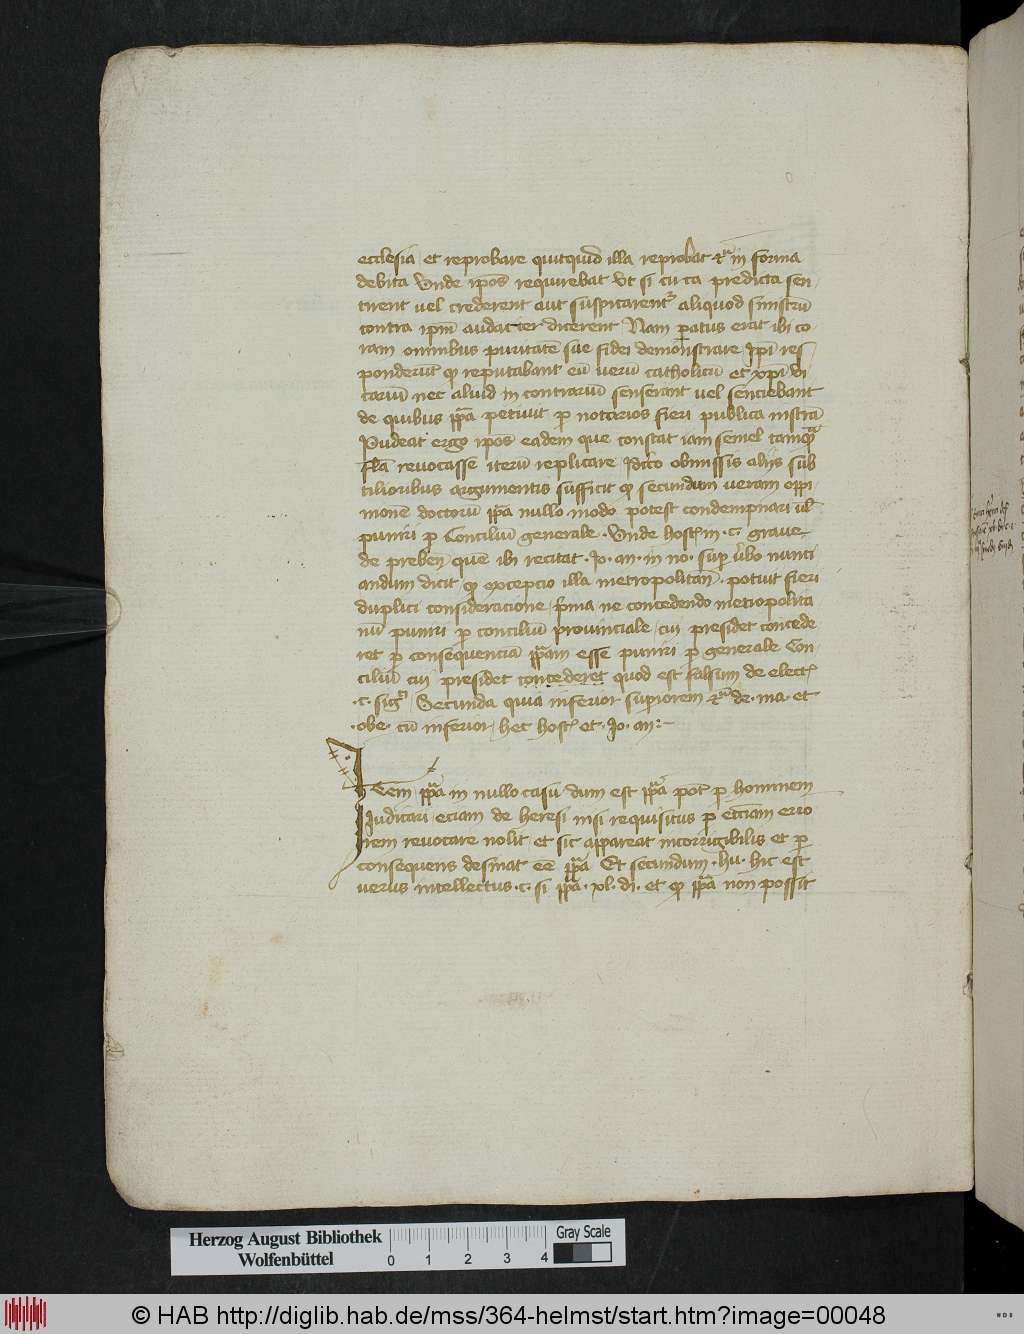 ecclesia et reprobare quitquid illa reprobat ⁊cᵃ in forma
debita Vnde ip̄os requirebat Vt si cit͛ca predicta sen-
tirent uel crederent aut suspicarentᷣ aliquod sinistrū
contra ip̄m audacter dicerent Nam ꝑatus erat ibi co
ram omnibus puritatē sue fidei demonstrare Ip̄i res-
ponderūt ꝙ reputabant eū uerū catholicū et xp̄i vi
cariū nec aliud in contrariū senserant uel senciebant
de quibus pp̄a petiuit ꝑ notarios fieri publica instrā
Pudeat ergo ip̄os eadem que constat iam semel tamqᷓ
fl̄a reuocasse iterū replicare Idc̄o obmissis alijs sub
tilioribus argumentis sufficit ꝙ secundum ueram oppi-
nionē doctorū pp̄a nullo modo potest condempnari ul̄
puniri ꝑ Conciliū generale · Vnde host̄ in · c · graue
de preben̄ quē ibi recitat · Jo · an · in no · suꝑ v̄bo nunci
andum dicit ꝙ excepcio illa metropolitan̄ · potuit fieri
duplici consideracione p̄ma ne concedendo metropolita
nū puniri ꝑ conciliū prouinciale cui presidet concede
ret ꝑ consequenciā pp̄am esse puniri ꝑ generale Con-
ciliū cui presidet concederet quod est falsum de elect̄
· c · sigᷓ Secunda quia inferior suꝑiorem ⁊cᵃ de · ma · et
· obe · cū inferior hec host̄ et · Jo · an :-
Item pp̄a in nullo casu dum est pp̄a pot̄ ꝑ hominem
iudicari eciam de heresi nisi requisitus ꝑ ecc̄iam erro
rem reuocare nolit et sic appareat incorrigibilis et ꝑ
consequens desinat eē pp̄a Et secundum · hu · hic est
uerus intellectus · c · si pp̄a · xl · di · et ꝙ pp̄a non possit
Herzog August Bibliothek
Wolfenbüttel
0 1 2 3 4
Gray Scale
© HAB http://diglib.hab.de/mss/364-helmst/start.htm?image=00048